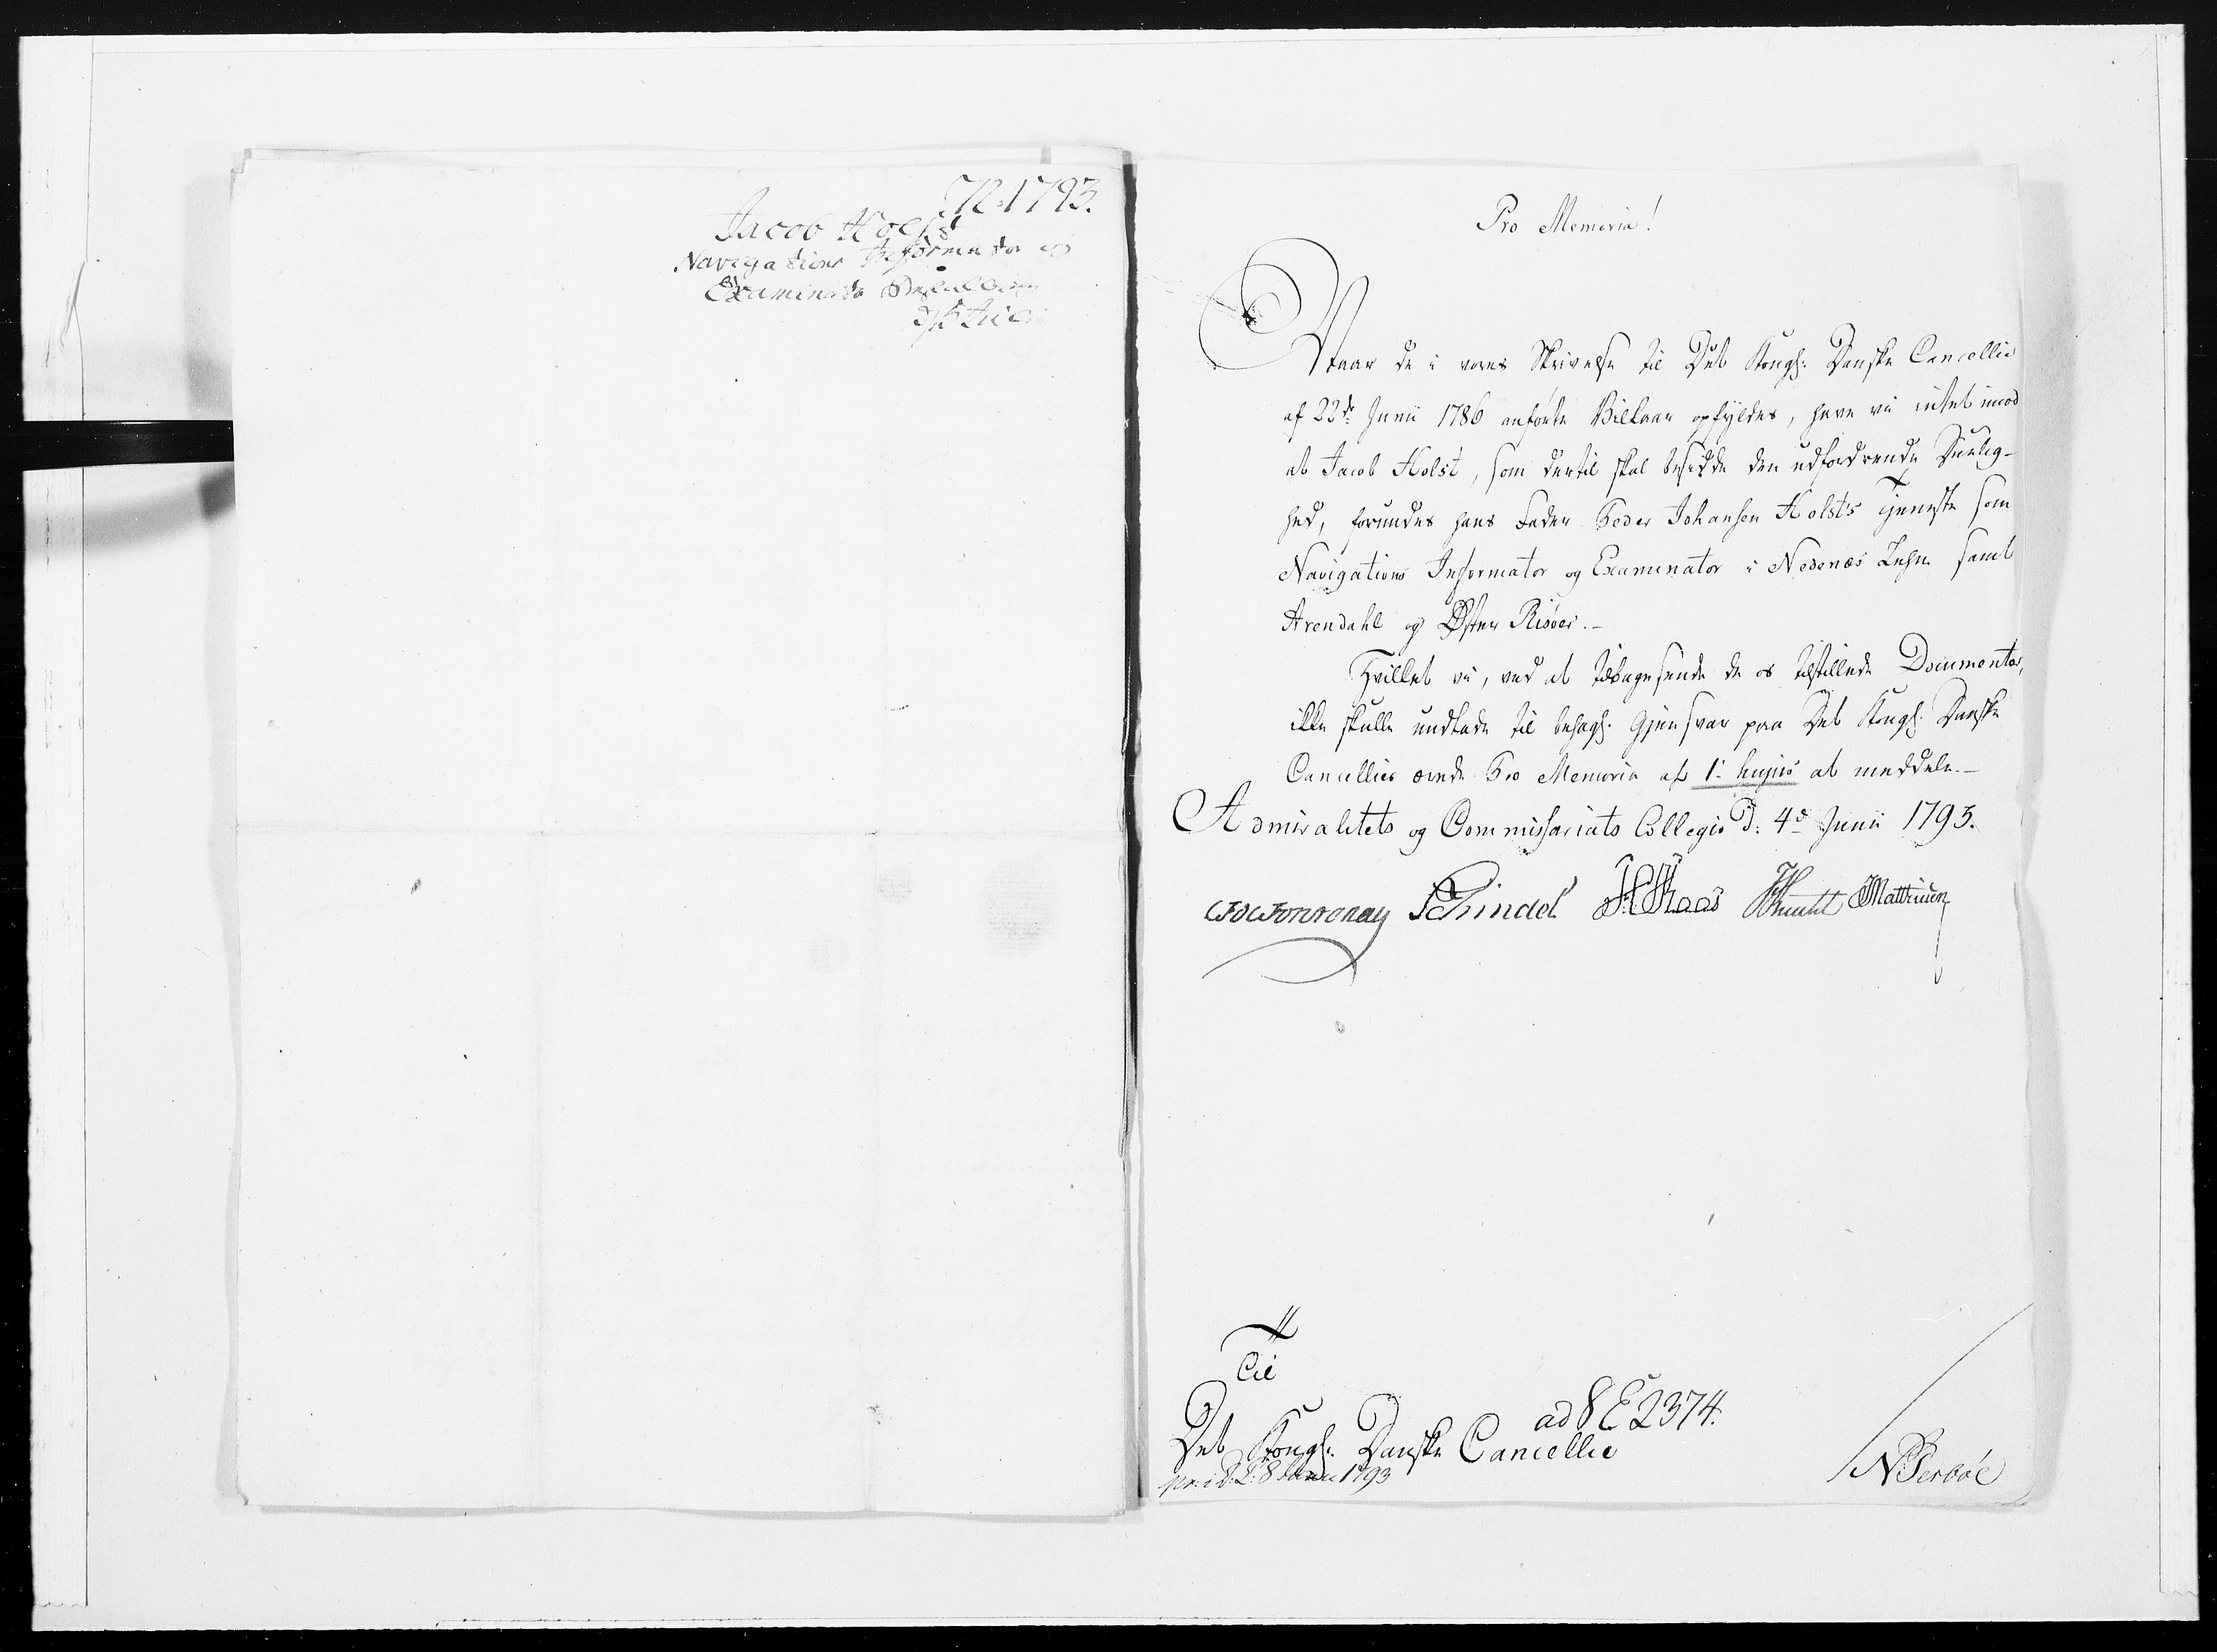 N. 1793.
Jacob Holst
Navigations Informator og
Examinator Bestalling
Pro Memoria!
Naar de i vores Skrivelse til Det Kongl: Danske Cancellie
af 22de Junii 1786 anførte Vilkaar opfyldes, have vi intet imod
at Jacob Holst, som dertil skal besidde den udfordrende Duelig-
hed, forundes hans Fader Peder Johansen Holst's Tjeneste som
Navigations Informator og Examinator i Nedenæs Lehn samt
Arendahl og Øster Risøer.-
Hvilket vi, ved at tilbagesende de os tilstillede Documenter,
ikke skulle undlade til behagl: Gjensvar paa Det Kongl: Danske
Cancellies ærede Pro Memoria af 1: hujus at meddele.-
Admiralitets og Commissariats Collegie d: 4de Junii 1793.
FdeFontenay Schindel FCKaas Knuth Matthiesen
Til
Det Kongl: Danske Cancellie
ad 8 E 2374.
8 Junii 1793